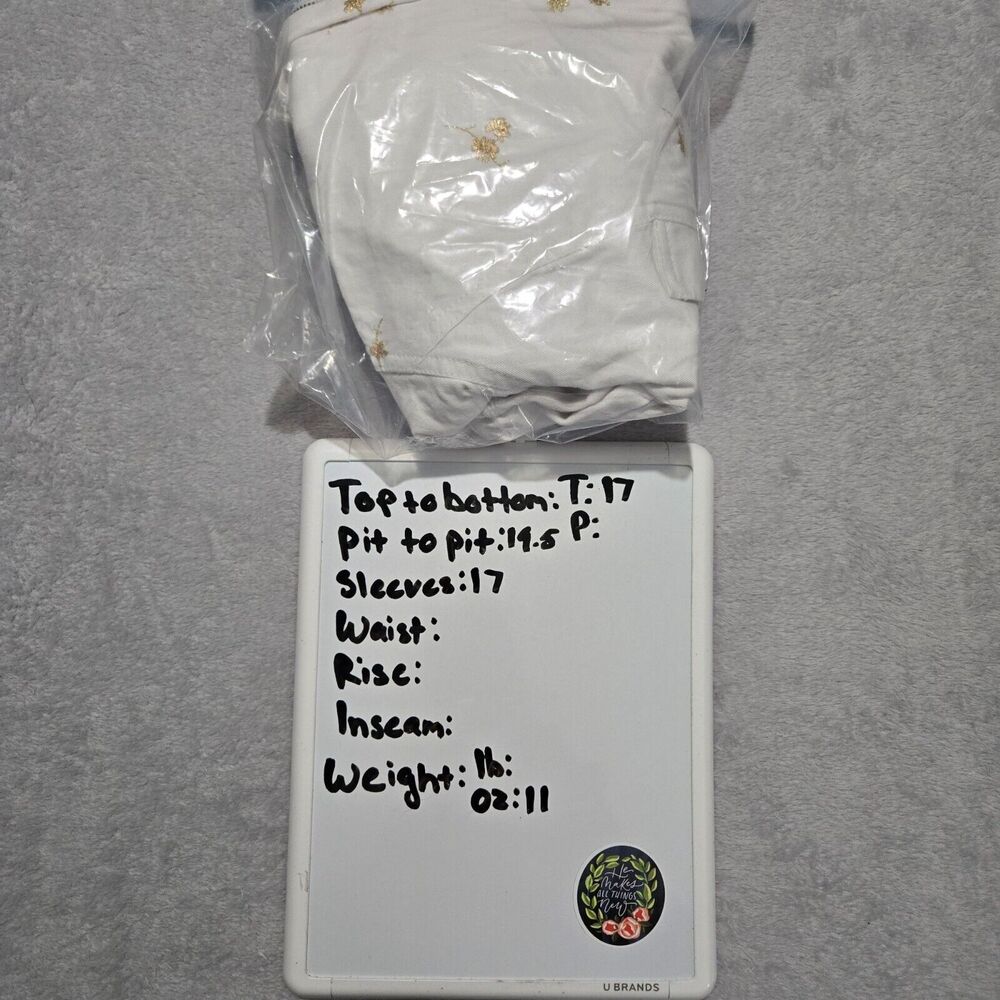 Top to bottom: T: 17
Pit to pit: 19.5 P:
Sleeves: 17
Waist:
Rise:
Inseam:
Weight: lb:
oz: 11
He
Makes
ALL THINGS
New
U BRANDS